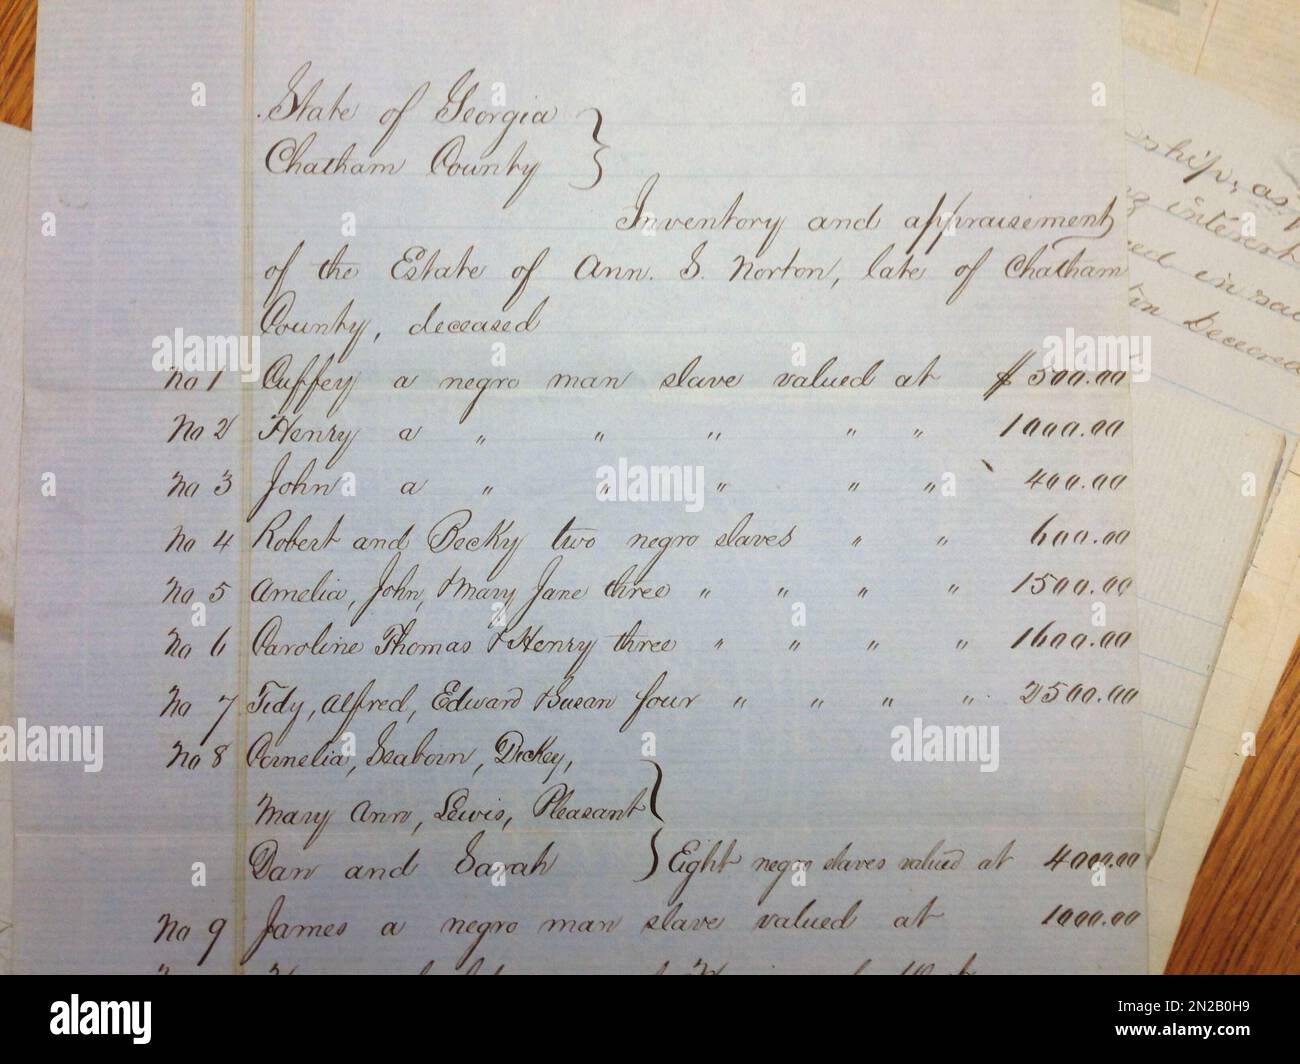 State of Georgia }
Chatham County }
Inventory and appraisement
of the Estate of Ann. S. Norton, late of Chatham
County, deceased
No 1 Cuffey a negro man slave valued at $500.00
No 2 Henry a " " " " " 1000.00
No 3 John a " " " " " 400.00
No 4 Robert and Becky two negro slaves " " 600.00
No 5 Amelia, John, & Mary Jane three " " " " 1500.00
No 6 Caroline Thomas & Henry three " " " " 1600.00
No 7 Tidy, Alfred, Edward & Susan four " " " " 2500.00
No 8 Cornelia, Seaborn, Dickey,
Mary Ann, Lewis, Pleasant
Dan and Sarah } Eight negro slaves valued at 4000.00
No 9 James a negro man slave valued at 1000.00
ship, as
interest
in
Deceased
alamy
Image ID: 2N2B0H9
www.alamy.com